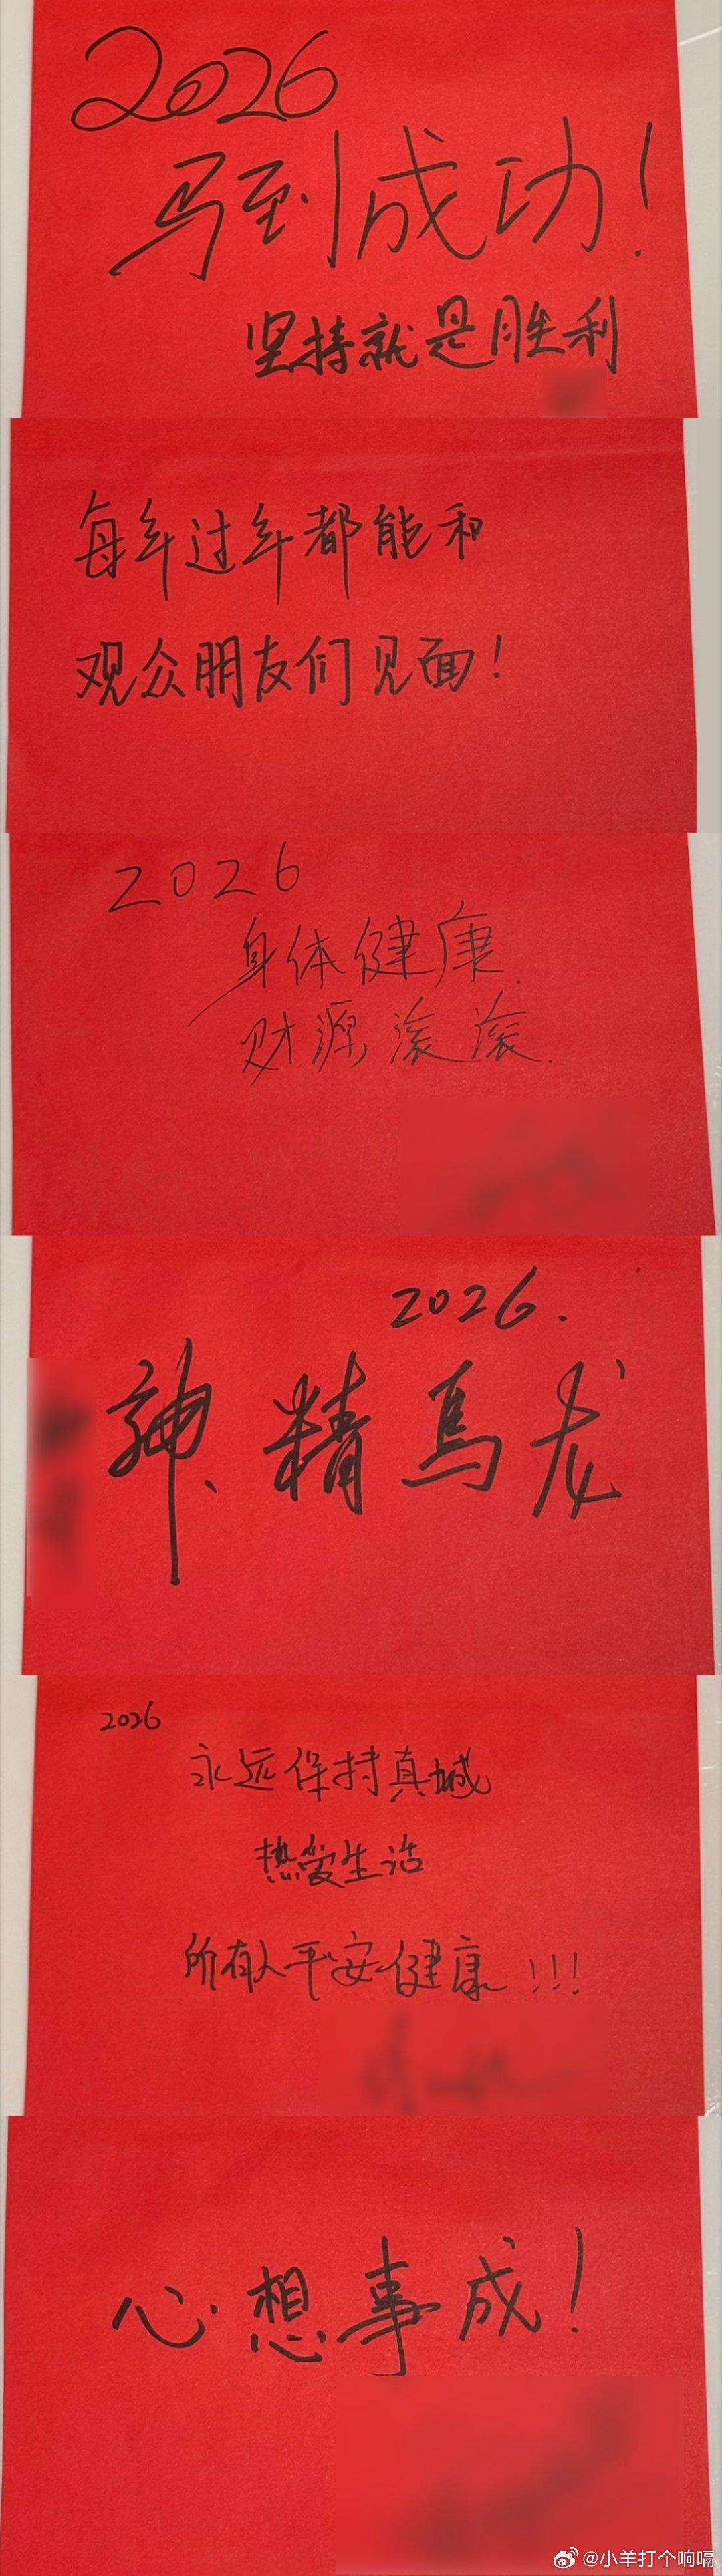 2026
马到成功!
坚持就是胜利
每年过年都能和
观众朋友们见面!
2026
身体健康.
财源滚滚.
2026.
神精马龙
2026
永远保持真诚
热爱生活
所有人平安健康!!!
心想事成!
@小羊打个响嗝